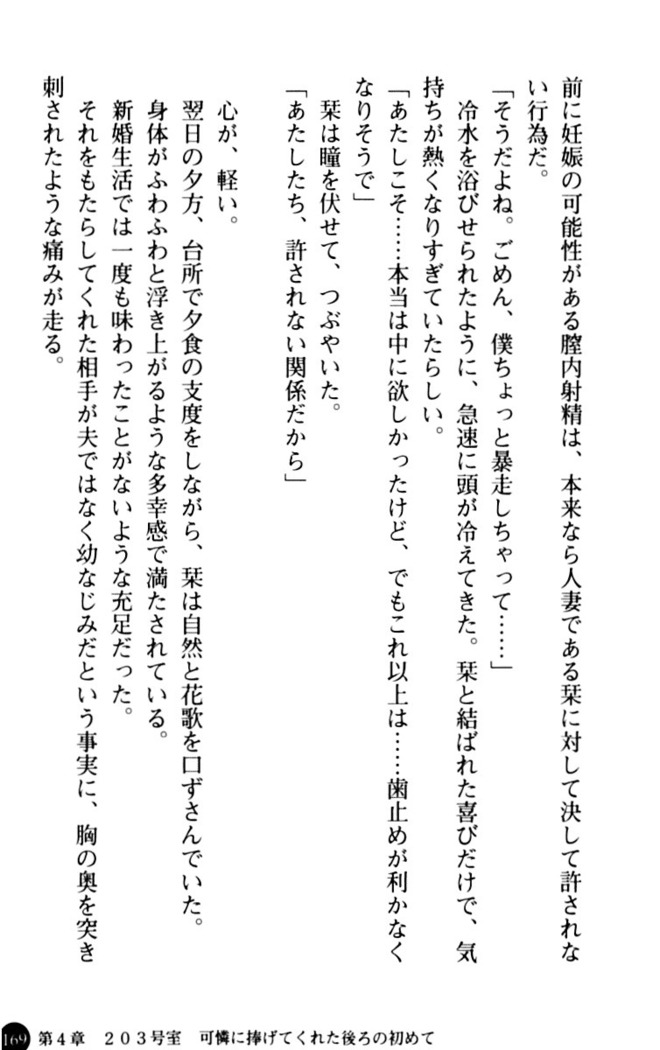 前に妊娠の可能性がある膣内射精は、本来なら人妻である栞に対して決して許されな
い行為だ。
「そうだよね。ごめん、僕ちょっと暴走しちゃって……」
冷水を浴びせられたように、急速に頭が冷えてきた。栞と結ばれた喜びだけで、気
持ちが熱くなりすぎていたらしい。
「あたしこそ……本当は中に欲しかったけど、でもこれ以上は……歯止めが利かなく
なりそうで」
栞は瞳を伏せて、つぶやいた。
「あたしたち、許されない関係だから」
心が、軽い。
翌日の夕方、台所で夕食の支度をしながら、栞は自然と花歌を口ずさんでいた。
身体がふわふわと浮き上がるような多幸感で満たされている。
新婚生活では一度も味わったことがないような充足だった。
それをもたらしてくれた相手が夫ではなく幼なじみだという事実に、胸の奥を突き
刺されたような痛みが走る。
169 第4章 203号室 可憐に捧げてくれた後ろの初めて